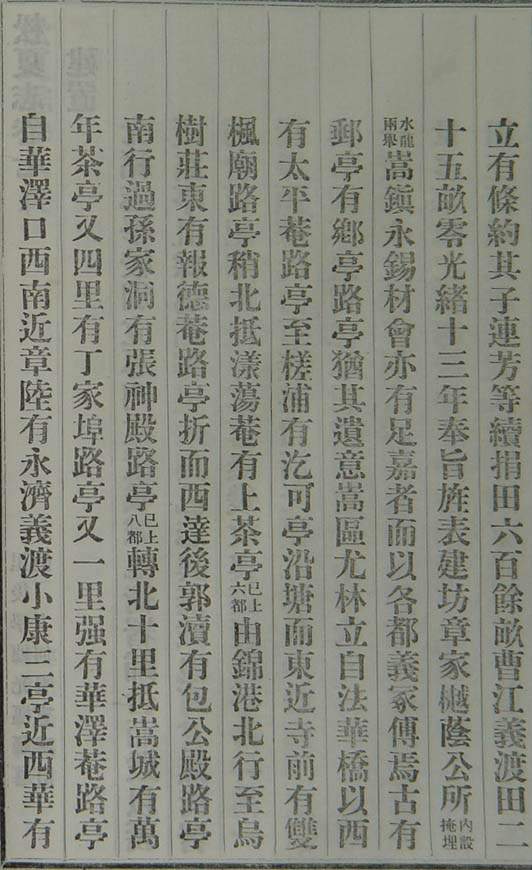 立有條約其子連芳等續捐田六百餘畝曹江義渡田二
十五畝零光緒十三年奉旨旌表建坊章家樾蔭公所內設掩埋
水龍兩舉嵩鎮永錫材會亦有足嘉者而以各都義冢傅焉古有
郵亭有鄉亭路亭猶其遺意嵩區尤林立自法華橋以西
有太平菴路亭至槎浦有汔可亭沿塘而東近寺前有雙
楓廟路亭稍北抵漾蕩菴有上茶亭已上六都由錦港北行至烏
樹莊東有報德菴路亭折而西達後郭瀆有包公殿路亭
南行過孫家洞有張神殿路亭已上八都轉北十里抵嵩城有萬
年茶亭又四里有丁家埠路亭又一里强有華澤菴路亭
自華澤口西南近章陸有永濟義渡小康三亭近西華有